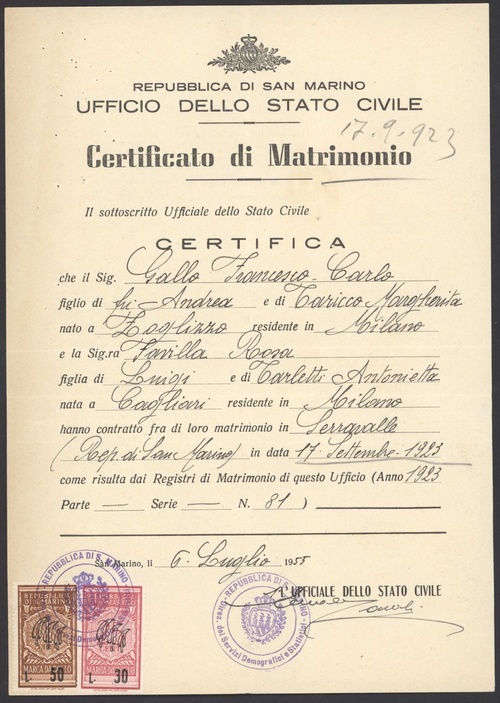 REPUBBLICA DI SAN MARINO
UFFICIO DELLO STATO CIVILE
17.9.923
Certificato di Matrimonio
Il sottoscritto Ufficiale dello Stato Civile
CERTIFICA
che il Sig. Gallo Francesco-Carlo
figlio di fu Andrea e di Taricco Margherita
nato a Zoglizzo residente in Milano
e la Sig.ra Favilla Rosa
figlia di Luigi e di Tarletti Antonietta
nata a Cagliari residente in Milano
hanno contratto fra di loro matrimonio in Serravalle
(Rep. di San Marino) in data 17 Settembre 1923
come risulta dai Registri di Matrimonio di questo Ufficio (Anno 1923
Parte — Serie — N. 81)
San Marino, li 6 Luglio 1955
L'UFFICIALE DELLO STATO CIVILE
REPUBBLICA DI S. MARINO
REPUBBLICA DI S. MARINO
Servizi Demografici e Statistici
MARCA DA BOLLO
L. 50
MARCA DA BOLLO
L. 30